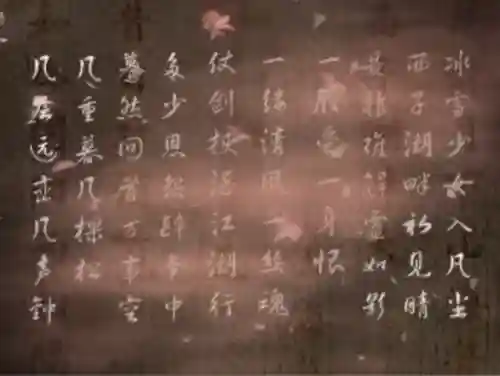 冰雪少女入凡尘
西子湖畔初见晴
是非难解虚如影
一腔爱一身恨
一缕清风一丝魂
仗剑挟酒江湖行
多少恩怨醉梦中
蓦然回首万事空
几重幕几棵松
几层远峦几声钟